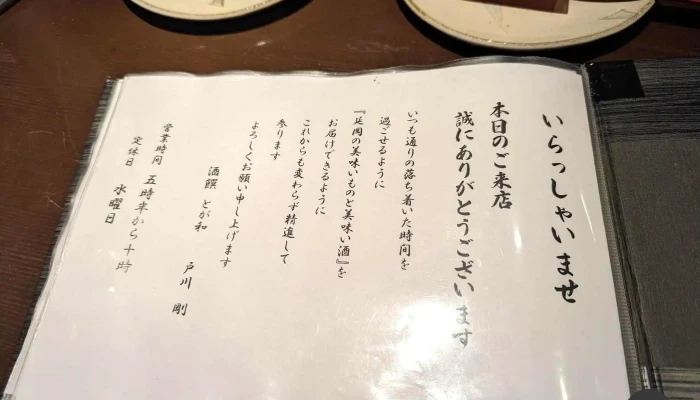 いらっしゃいませ
本日のご来店
誠にありがとうございます
いつも通りの落ち着いた時間を
過ごせるように
『延岡の美味いものと美味い酒』を
お届けできるように
これからも変わらず精進して
参ります
よろしくお願い申し上げます
酒饌 とが和
戸川 剛
営業時間 五時半から十時
定休日 水曜日